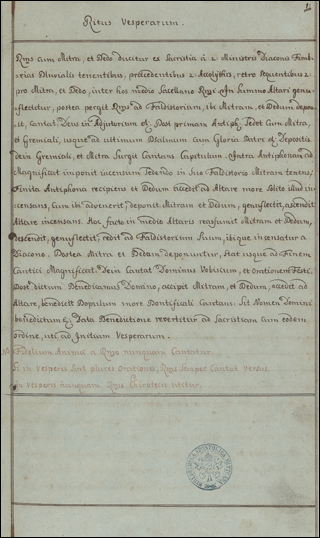 Ritus Vesperarum.
Rmus cum Mitra, et Pedo ducitur ex Sacristia a 2 Ministris Diaconis Fimb-
rias Pluvialis tenentibus, præcedentibus 2 Accolythis, retro sequentibus 2
pro Mitra, et Pedo, inter hos medio Sacellano Rmi. In Limine Altari genu-
flectitur, postea pergit Rmus ad Faldistorium, ibi Mitram, et Pedum depon-
it, Cantat Deus in Adjutorium &c. Post primam Antiph. Sedet Cum Mitra,
et Gremiali, usque ad ultimum Psalmum cum Gloria Patri &c. Depositis
dein Gremiali, et Mitra Surgit Cantans Capitulum. Intra Antiphonam ad
Magnificat imponit incensum Sedendo in Suo Faldistorio Mitram tenens,
Finita Antiphona recipiens et Pedum accedit ad Altare more Solito illud in-
censans, Cum ibi advenerit, deponit Mitram et Pedum, genuflectit, ascendit
Altare incensans. Hoc facto in medio Altaris reassumit Mitram et Pedum,
descendit, genuflectit, redit ad Faldistorium Suum, ibique incensatur a
Diacono. Postea Mitra et Pedum deponuntur, Stat usque ad Finem
Cantici Magnificat. Dein Cantat Dominus Vobiscum, et orationem Festi.
Post dictum Benedicamus Domino, accipit Mitram, et Pedum, accedit ad
Altare, benedicit Populum more Pontificali Cantans: Sit Nomen Domini
benedictum &c. Data Benedictione revertitur ad Sacristiam cum eodem
ordine, uti ad Initium Vesperarum.
Fidelium Animæ a Rmo nunquam Cantatur.
Si in Vesperis Sint plures Orationes, Rmus Semper Cantat
in Vesperis nunquam Rmus utitur.